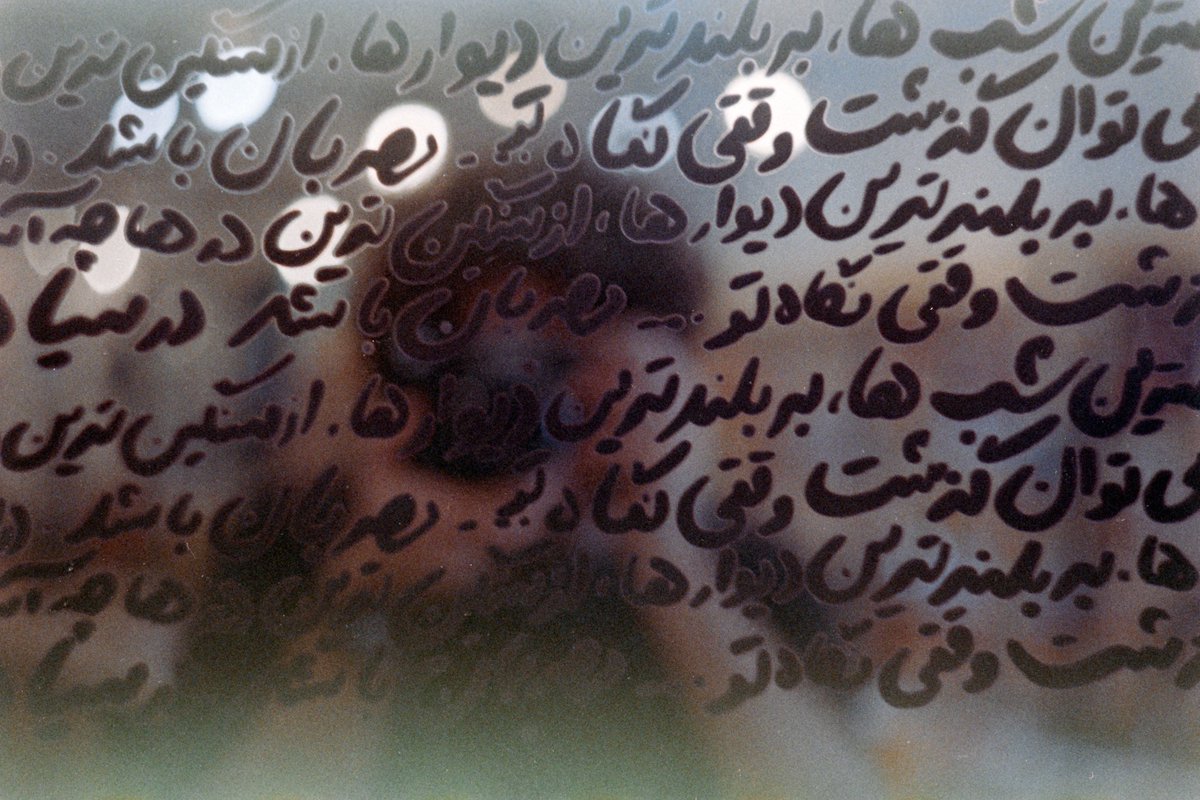 شب ها، بر بلندترین دیوارها. از سنگین ترین
می توان گذشت وقتی نگاه تو .. مهربان باشد. در
ها. بر بلندترین دیوارها، از سنگین ترین درها چه
وقتی نگاه تو ... مهربان باشد در سیا
شب ها، بر بلندترین دیوارها. از سنگین ترین
می توان گذشت وقتی نگاه تو .. مهربان باشد
ها. بر بلندترین دیوارها ترین درها چه
وقتی نگاه تو